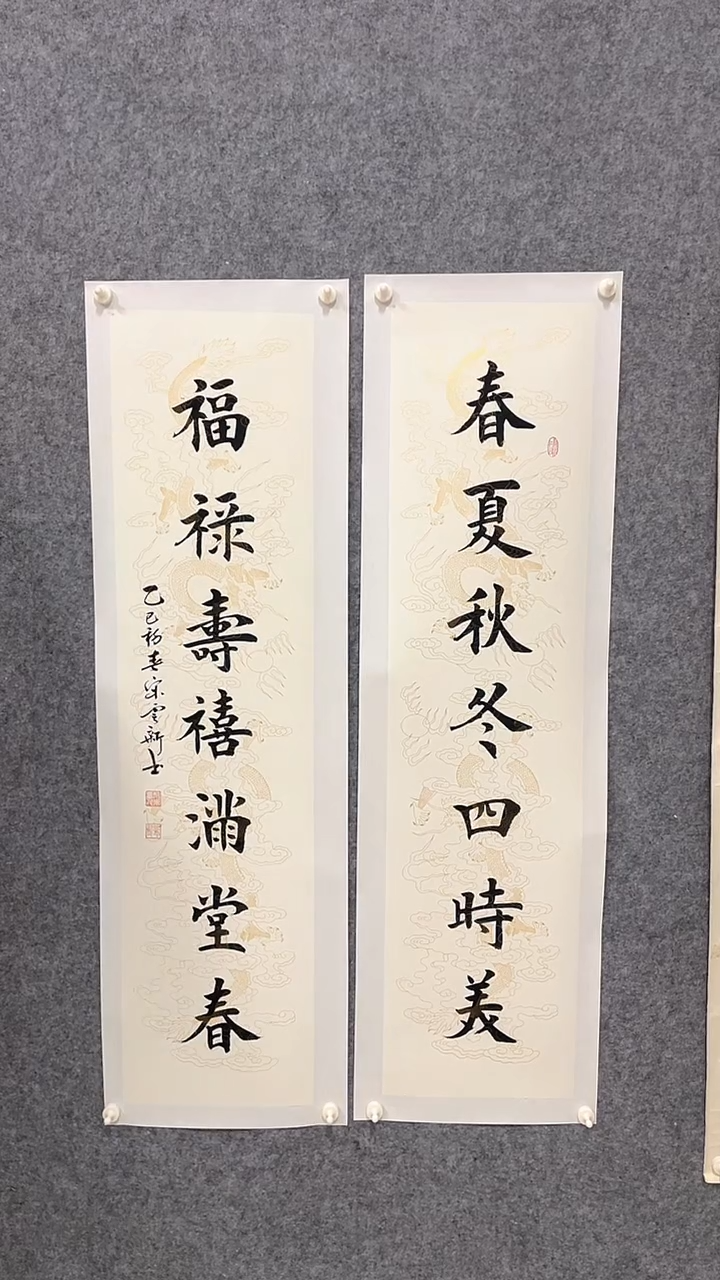 春夏秋冬四時美
福禄壽禧滿堂春
乙巳初春宋雲新书